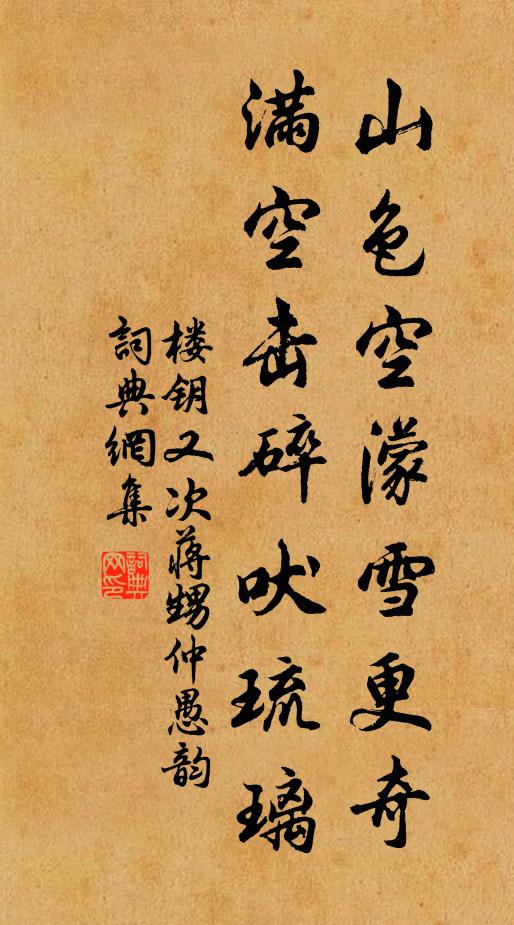 山色空濛雪更奇
满空击碎吠琉璃
楼钥又次蒋甥仲愚韵
詞典網集
詞典网印